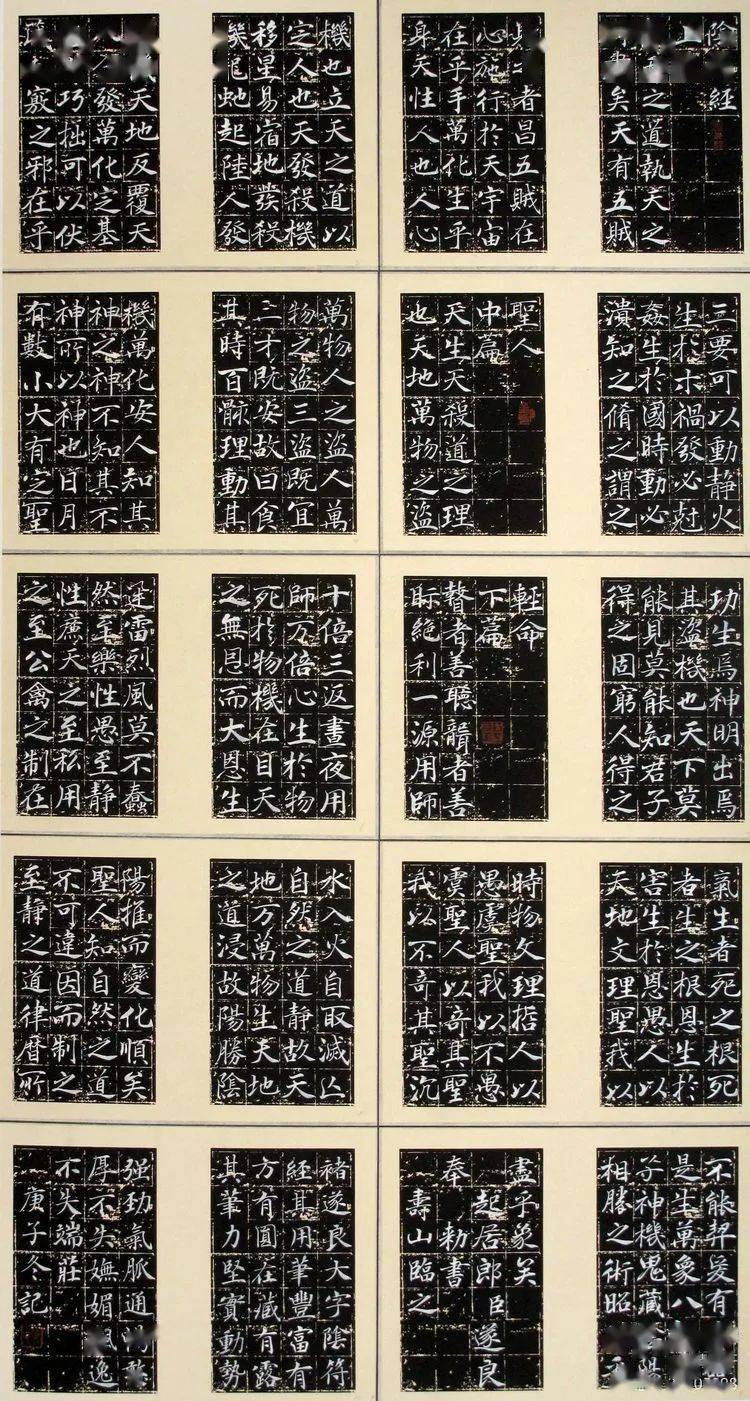 陰經
上
之道執天之
矣天有五賊
者昌五賊在
心施行於天宇宙
在乎手萬化生乎
身天性人也人心
機也立天之道以
定人也天發殺機
移星易宿地發殺
虵起陸人發
天地反覆天
發萬化定基
巧拙可以伏
竅之邪在乎
三要可以動靜火
生於木禍發必尅
姦生於國時動必
潰知之脩之謂之
聖人
中篇
天生天殺道之理
也天地萬物之盜
萬物人之盜人萬
物之盜三盜既宜
三才既安故曰食
其時百骸理動其
機萬化安人知其
神之神不知其不
神所以神也日月
有數小大有定聖
功生焉神明出焉
其盜機也天下莫
能見莫能知君子
得之固窮人得之
輕命
下篇
瞽者善聽聾者善
眎絶利一源用師
十倍三返晝夜用
師万倍心生於物
死於物機在目天
之無恩而大恩生
迅雷烈風莫不蠢
然至樂性愚至静
性庶天之至私用
之至公禽之制在
氣生者死之根死
者生之根恩生於
害生於恩愚人以
天地文理聖我以
時物文理哲人以
愚虞聖我以不愚
虞聖人以奇其聖
我以不奇其聖沉
水入火自取滅亡
自然之道静故天
地万萬物生天地
之道浸故陽勝陰
陽推而變化順矣
聖人知自然之道
不可違因而制之
至静之道律曆所
不能契爰有
是生萬象八
子神機鬼藏陽
相勝之術昭
盡乎象矣
起居郎臣遂良
奉勅書
壽山臨之
褚遂良大字陰符
經其用筆豐富有
方有圓在藏有露
其筆力堅實動勢
强勁氣脈通暢渾
厚不失嫵媚飄逸
不失端莊
庚子冬記